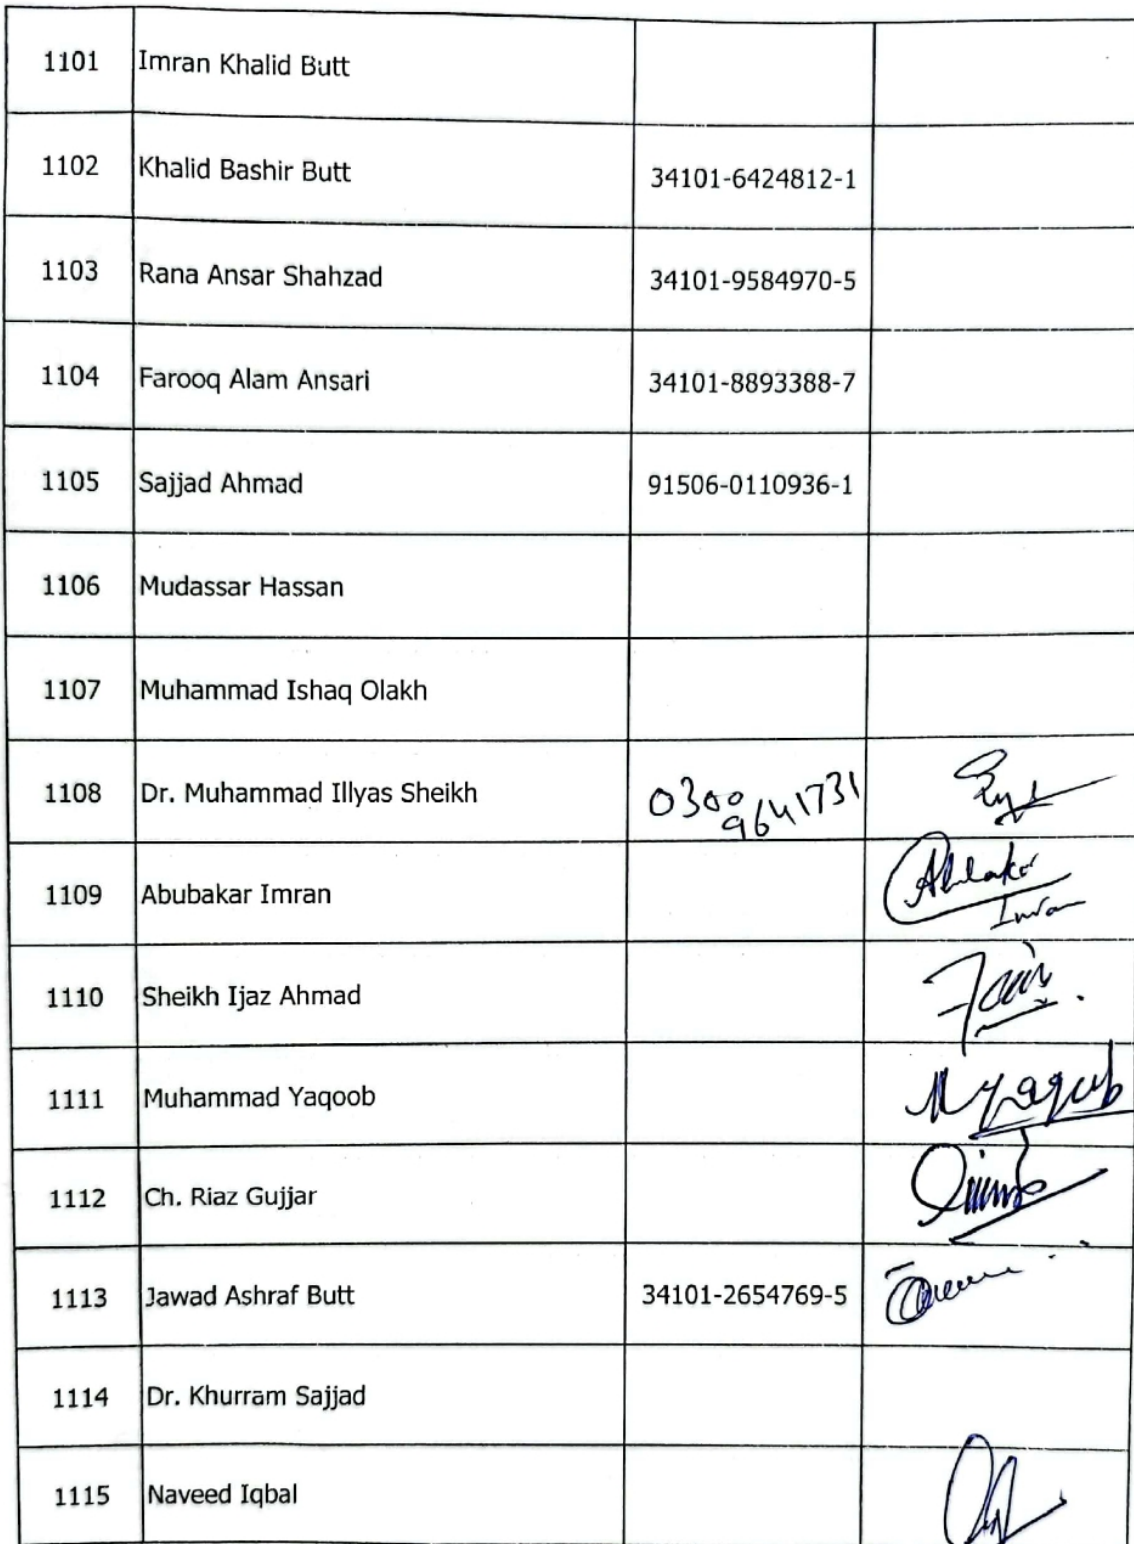 1101 Imran Khalid Butt
1102 Khalid Bashir Butt 34101-6424812-1
1103 Rana Ansar Shahzad 34101-9584970-5
1104 Farooq Alam Ansari 34101-8893388-7
1105 Sajjad Ahmad 91506-0110936-1
1106 Mudassar Hassan
1107 Muhammad Ishaq Olakh
1108 Dr. Muhammad Illyas Sheikh 0300 9641731
1109 Abubakar Imran
1110 Sheikh Ijaz Ahmad
1111 Muhammad Yaqoob M Yaqub
1112 Ch. Riaz Gujjar
1113 Jawad Ashraf Butt 34101-2654769-5
1114 Dr. Khurram Sajjad
1115 Naveed Iqbal